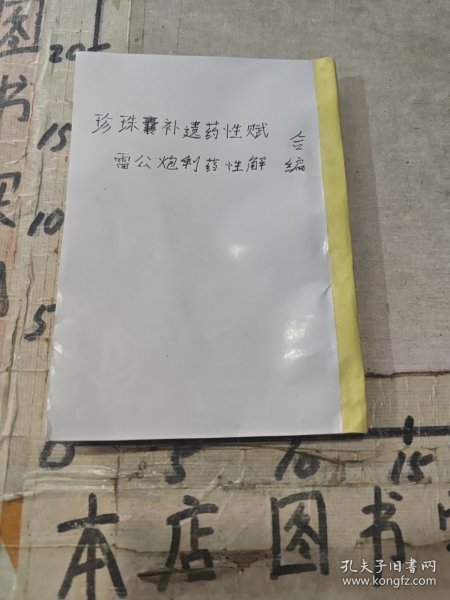 珍珠囊补遗药性赋
雷公炮制药性解
合编
图书
20
15
10
5
0
5
10
15
本店图书
孔夫子旧书网
www.kongfz.com